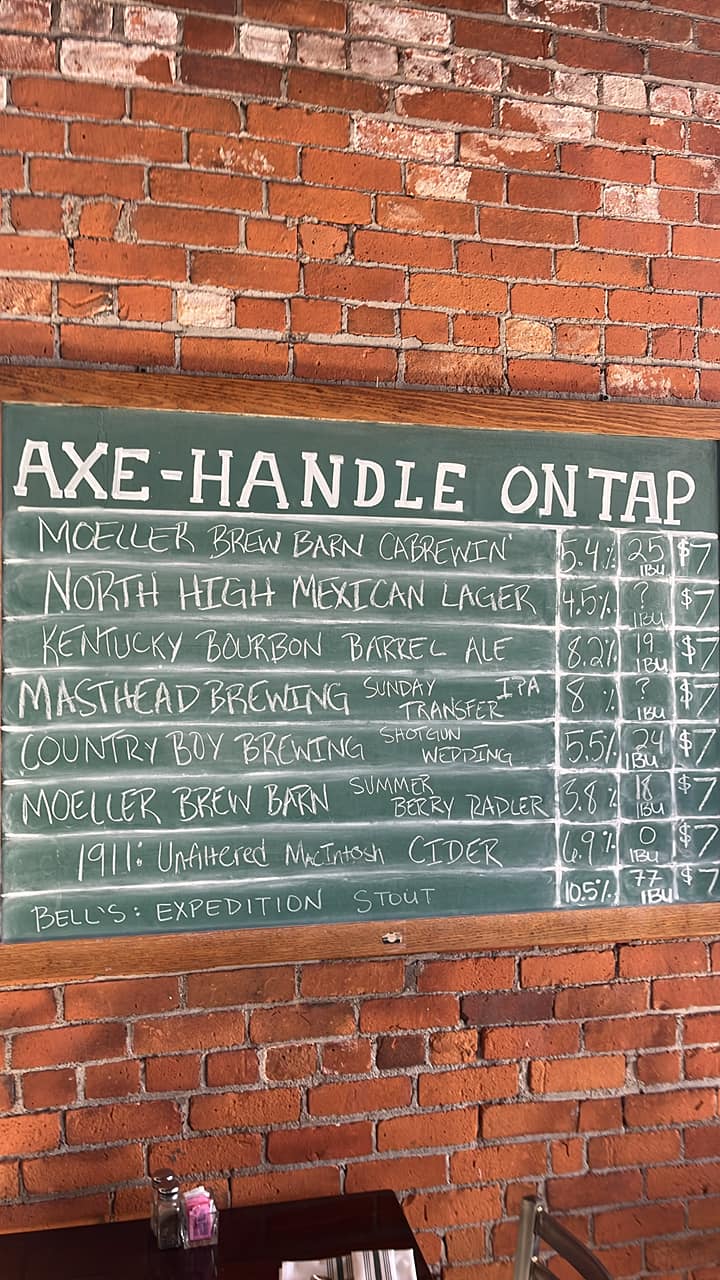 AXE-HANDLE ON TAP
MOELLER BREW BARN CABREWIN' 5.4% 25 IBU $7
NORTH HIGH MEXICAN LAGER 4.5% ? IBU $7
KENTUCKY BOURBON BARREL ALE 8.2% 19 IBU $7
MASTHEAD BREWING SUNDAY TRANSFER IPA 8 % ? IBU $7
COUNTRY BOY BREWING SHOTGUN WEDDING 5.5% 24 IBU $7
MOELLER BREW BARN SUMMER BERRY RADLER 3.8% 18 IBU $7
1911: Unfiltered MacIntosh CIDER 6.9% 0 IBU $7
BELL'S: EXPEDITION STOUT 10.5% 77 IBU $7